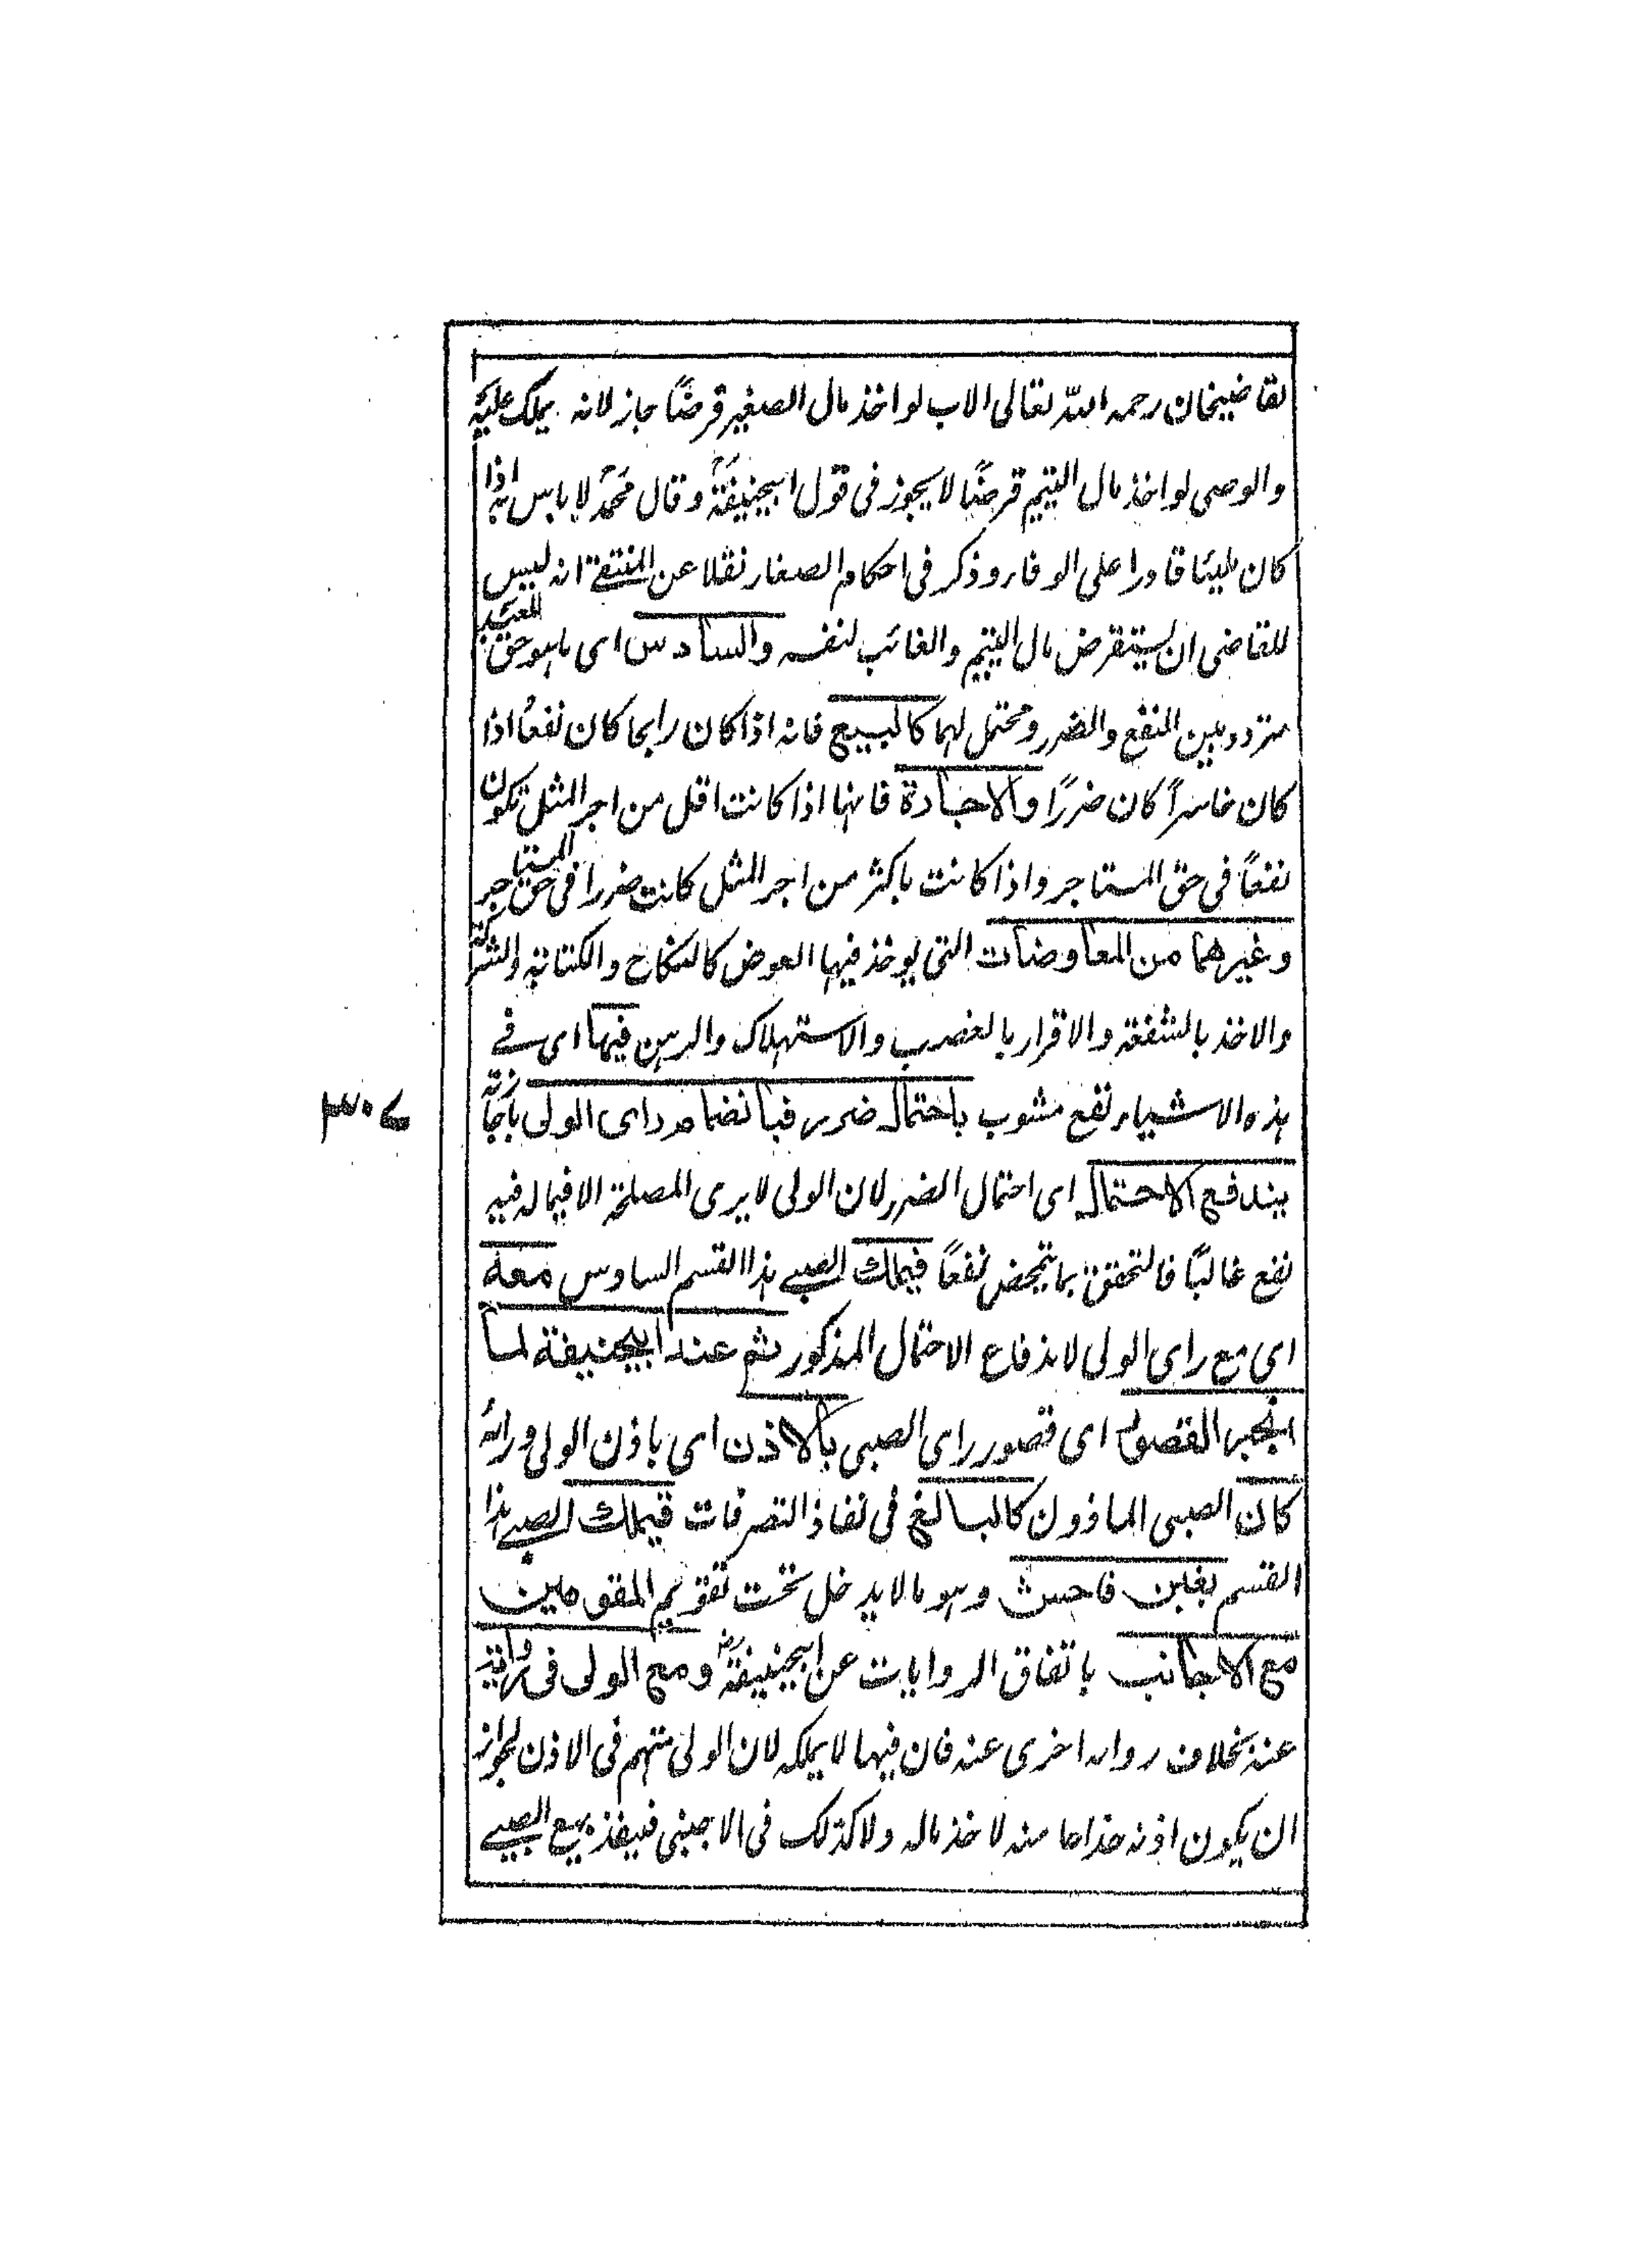 لقاضیخان رحمہ اللہ تعالی الاب لو اخذ مال الصغیر قرضًا جاز لانہ یملک علیہ
والوصی لو اخذ مال الیتیم قرضًا لا یجوز فی قول ابیحنیفۃؒ وقال محمدؒ لا باس بہ اذا
کان ملیئا قادرا علی الوفاء وذکر فی احکام الصغار نقلا عن المنتقے انہ لیس
للقاضی ان یستقرض مال الیتیم والغائب لنفسہ والسادس ای ما ہو حق العبد
متردد بین النفع والضرر ومحتمل لہما کالبیع فانہ اذا کان رابحا کان نفعًا اذا
کان خاسراً کان ضررًا والاجارۃ فانہا اذا کانت اقل من اجر المثل تکون
نفعاً فی حق المستاجر واذا کانت باکثر من اجر المثل کانت ضررا فی حق المستاجر
وغیرھما من المعاوضات التی یوخذ فیہا العوض کالنکاح والکتابۃ والشرکۃ
والاخذ بالشفعۃ والاقرار بالغصب والاستہلاک والرہن فیہا ای فے
ہذہ الاشیاء نفع مشوب باحتمال ضرر فبانضمام رای الولی باجازتہ
یندفع الاحتمال ای احتمال الضرر لان الولی لا یری المصلحۃ الا فیما لہ فیہ
نفع غالبًا فالتحقق بما یتمحض نفعاً فیملک الصبے ہذا القسم السادس معہ
ای مع رای الولی لاندفاع الاحتمال المذکور ثم عند ابیحنیفۃ لما
انجبر القصور ای قصور رای الصبی بالاذن ای باذن الولی ورایہ
کان الصبی الماذون کالبالغ فی نفاذ التصرفات فیملک الصبے ہذا
القسم بغبن فاحش وہو ما لا یدخل تحت تقویم المقومین
مع الاجانب باتفاق الروایات عن ابیحنیفۃؓ ومع الولی فی روایۃ
عنہ بخلاف روایہ اخری عنہ فان فیہا لا یملکہ لان الولی متہم فی الاذن لجواز
ان یکون اذنہ خداعا منہ لاخذ مالہ ولا کذلک فی الاجنبی فینفذ بیع الصبے
۳۰۷